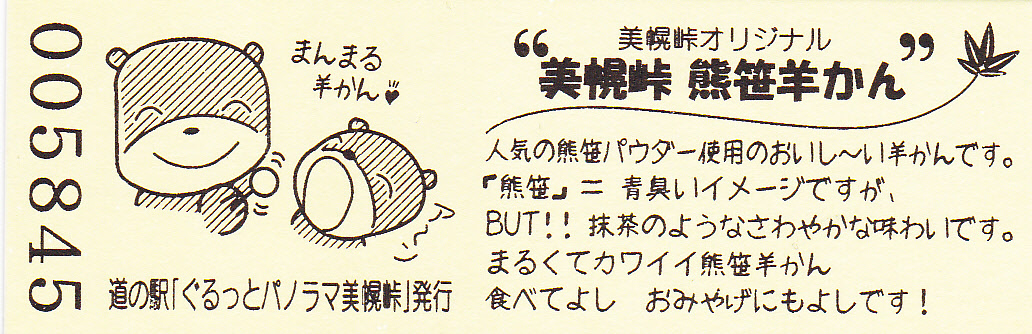 005845
まんまる
羊かん
ア〜ン
道の駅「ぐるっとパノラマ美幌峠」発行
美幌峠オリジナル
“美幌峠 熊笹羊かん”
人気の熊笹パウダー使用のおいし〜い羊かんです。
『熊笹』＝ 青臭いイメージですが、
BUT!! 抹茶のようなさわやかな味わいです。
まるくてカワイイ熊笹羊かん
食べてよし おみやげにもよしです！